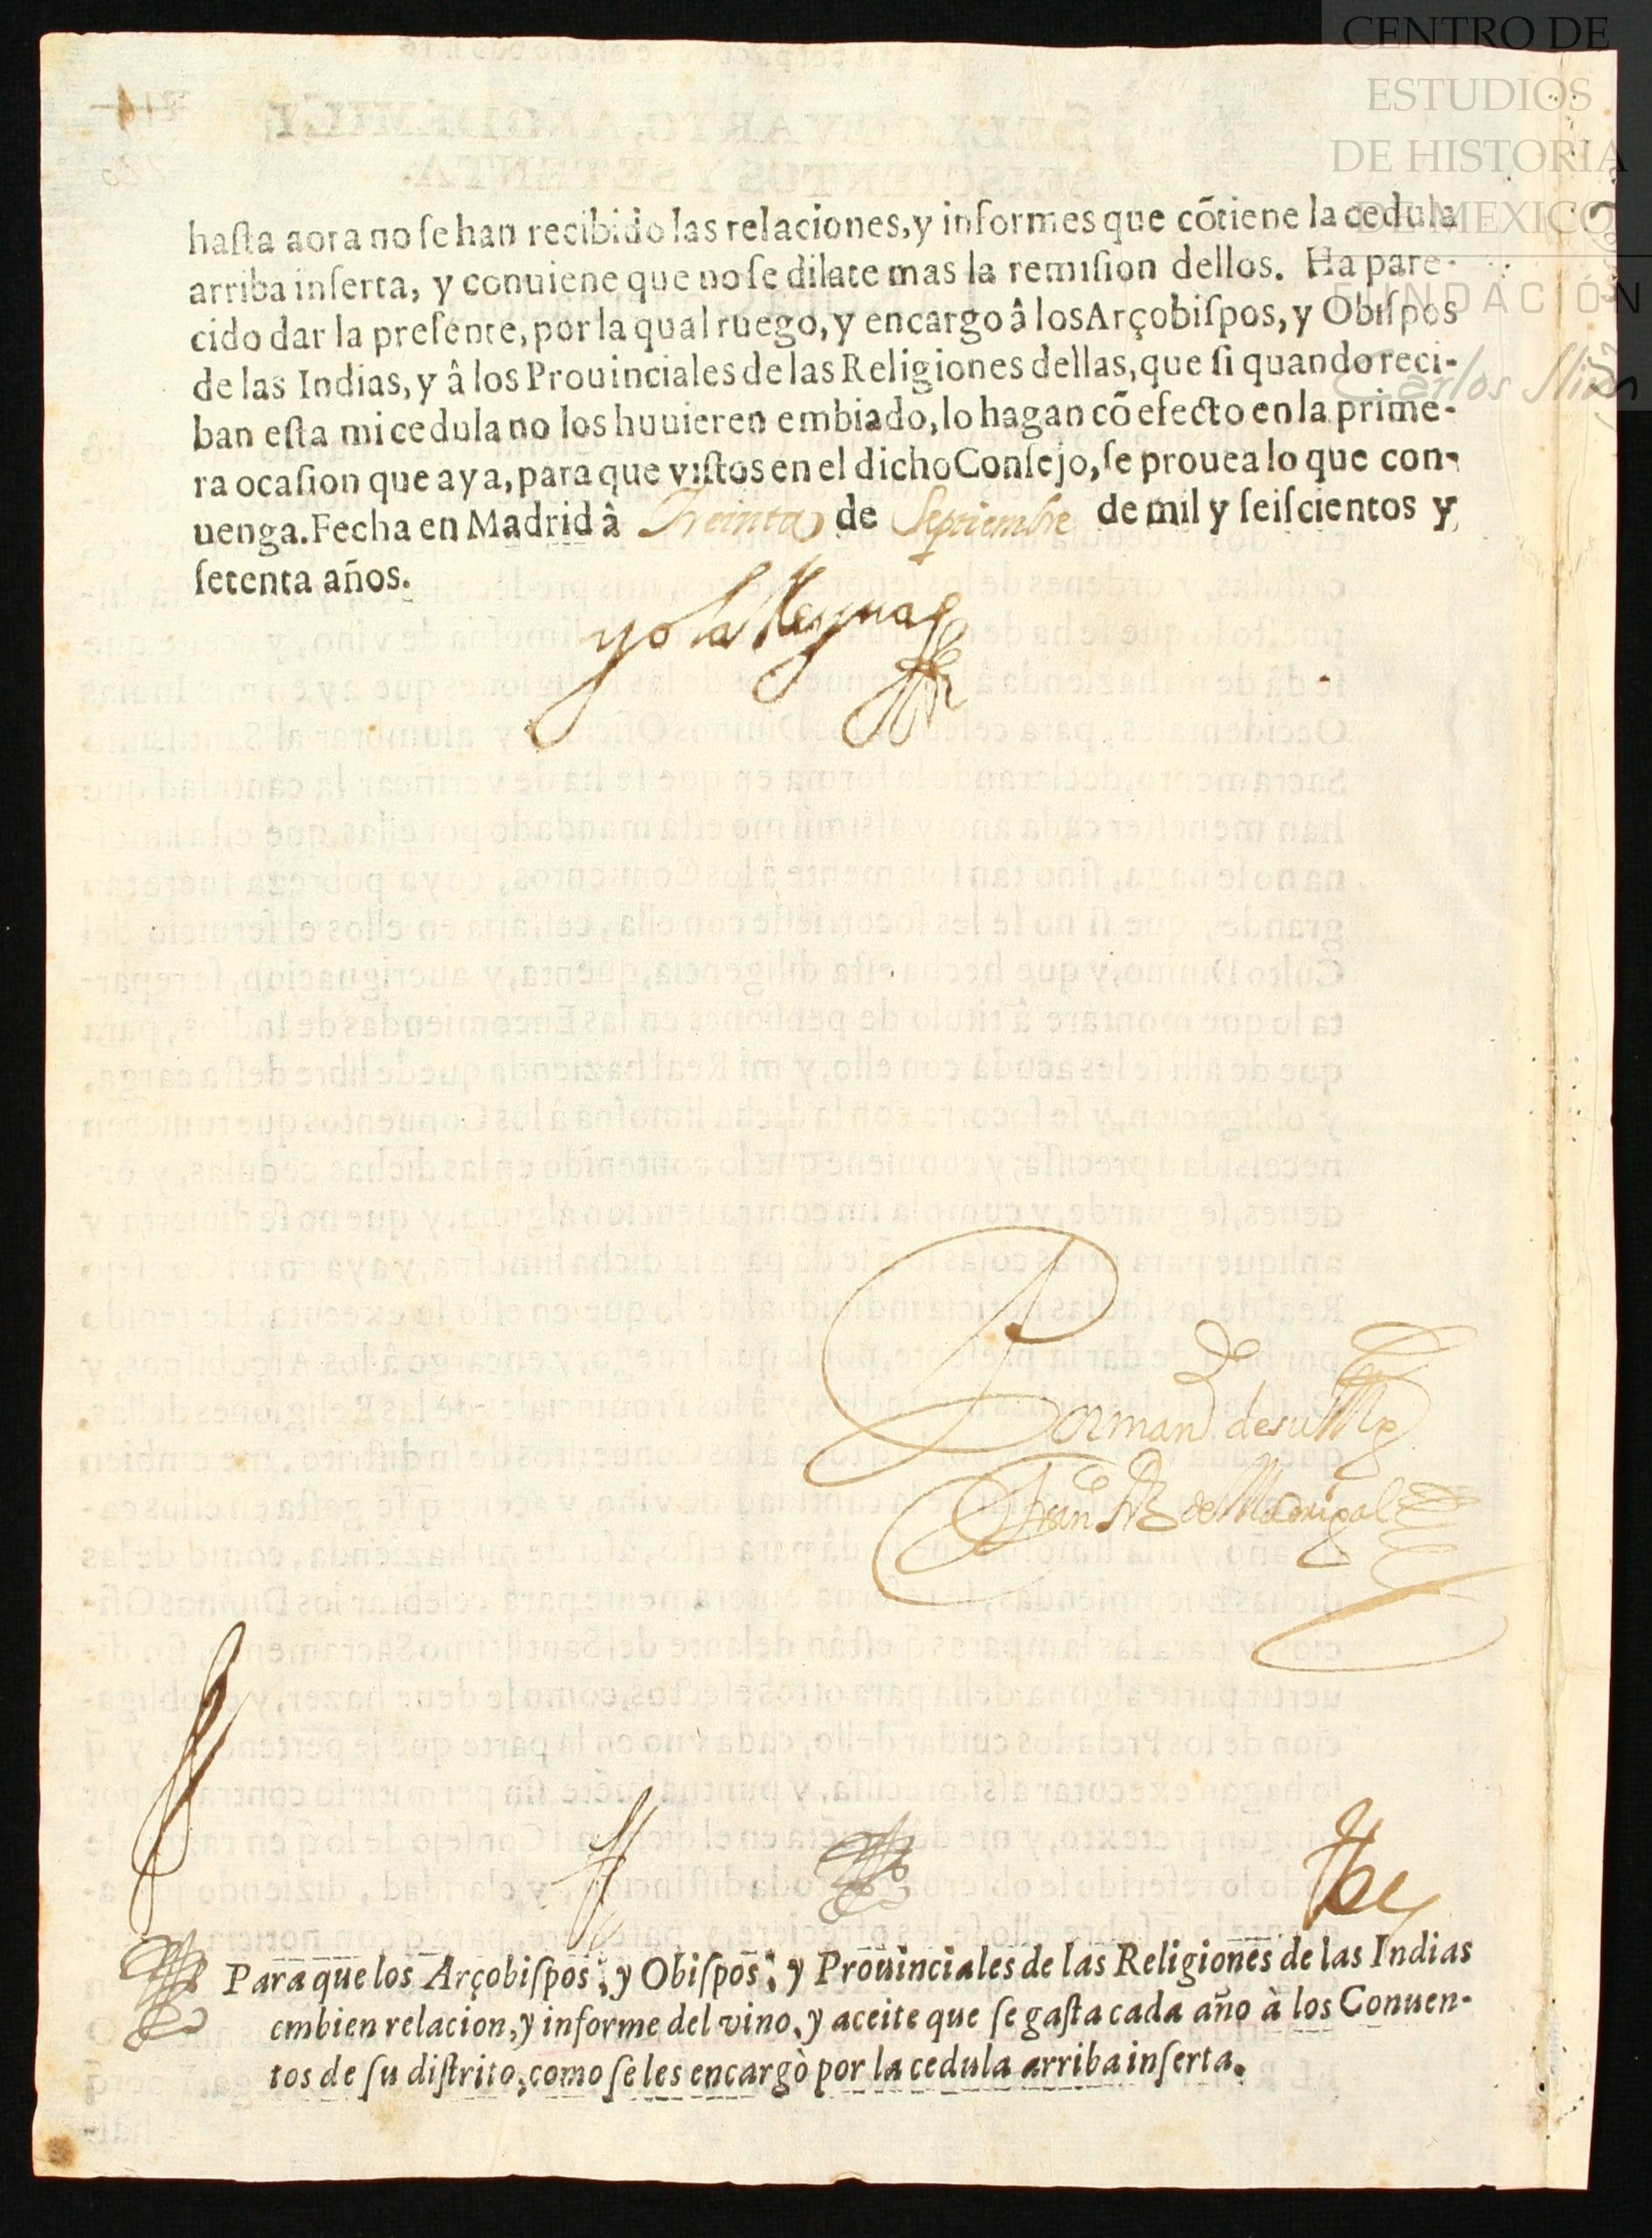 CENTRO DE
ESTUDIOS
DE HISTORIA
DE MEXICO
FUNDACIÓN
Carlos Slim
haſta aora no ſe han recibido las relaciones, y informes que cõtiene la cedula
arriba inſerta, y conuiene que no ſe dilate mas la remiſion dellos. Ha pare-
cido dar la preſente, por la qual ruego, y encargo â los Arçobiſpos, y Obiſpos
de las Indias, y â los Prouinciales de las Religiones dellas, que ſi quando reci-
ban eſta mi cedula no los huuieren embiado, lo hagan cõ efecto en la prime-
ra ocaſion que aya, para que viſtos en el dicho Conſejo, ſe prouea lo que con-
uenga. Fecha en Madrid â Treinta de Septiembre de mil y ſeiſcientos y
ſetenta años.
yo la Reyna
Por man.do de su Mg.d
Fran.co Frz de Madrigal
Para que los Arçobiſpos, y Obiſpos, y Prouinciales de las Religiones de las Indias
embien relacion, y informe del vino, y aceite que ſe gaſta cada año à los Conuen-
tos de ſu diſtrito, como ſe les encargò por la cedula arriba inſerta.